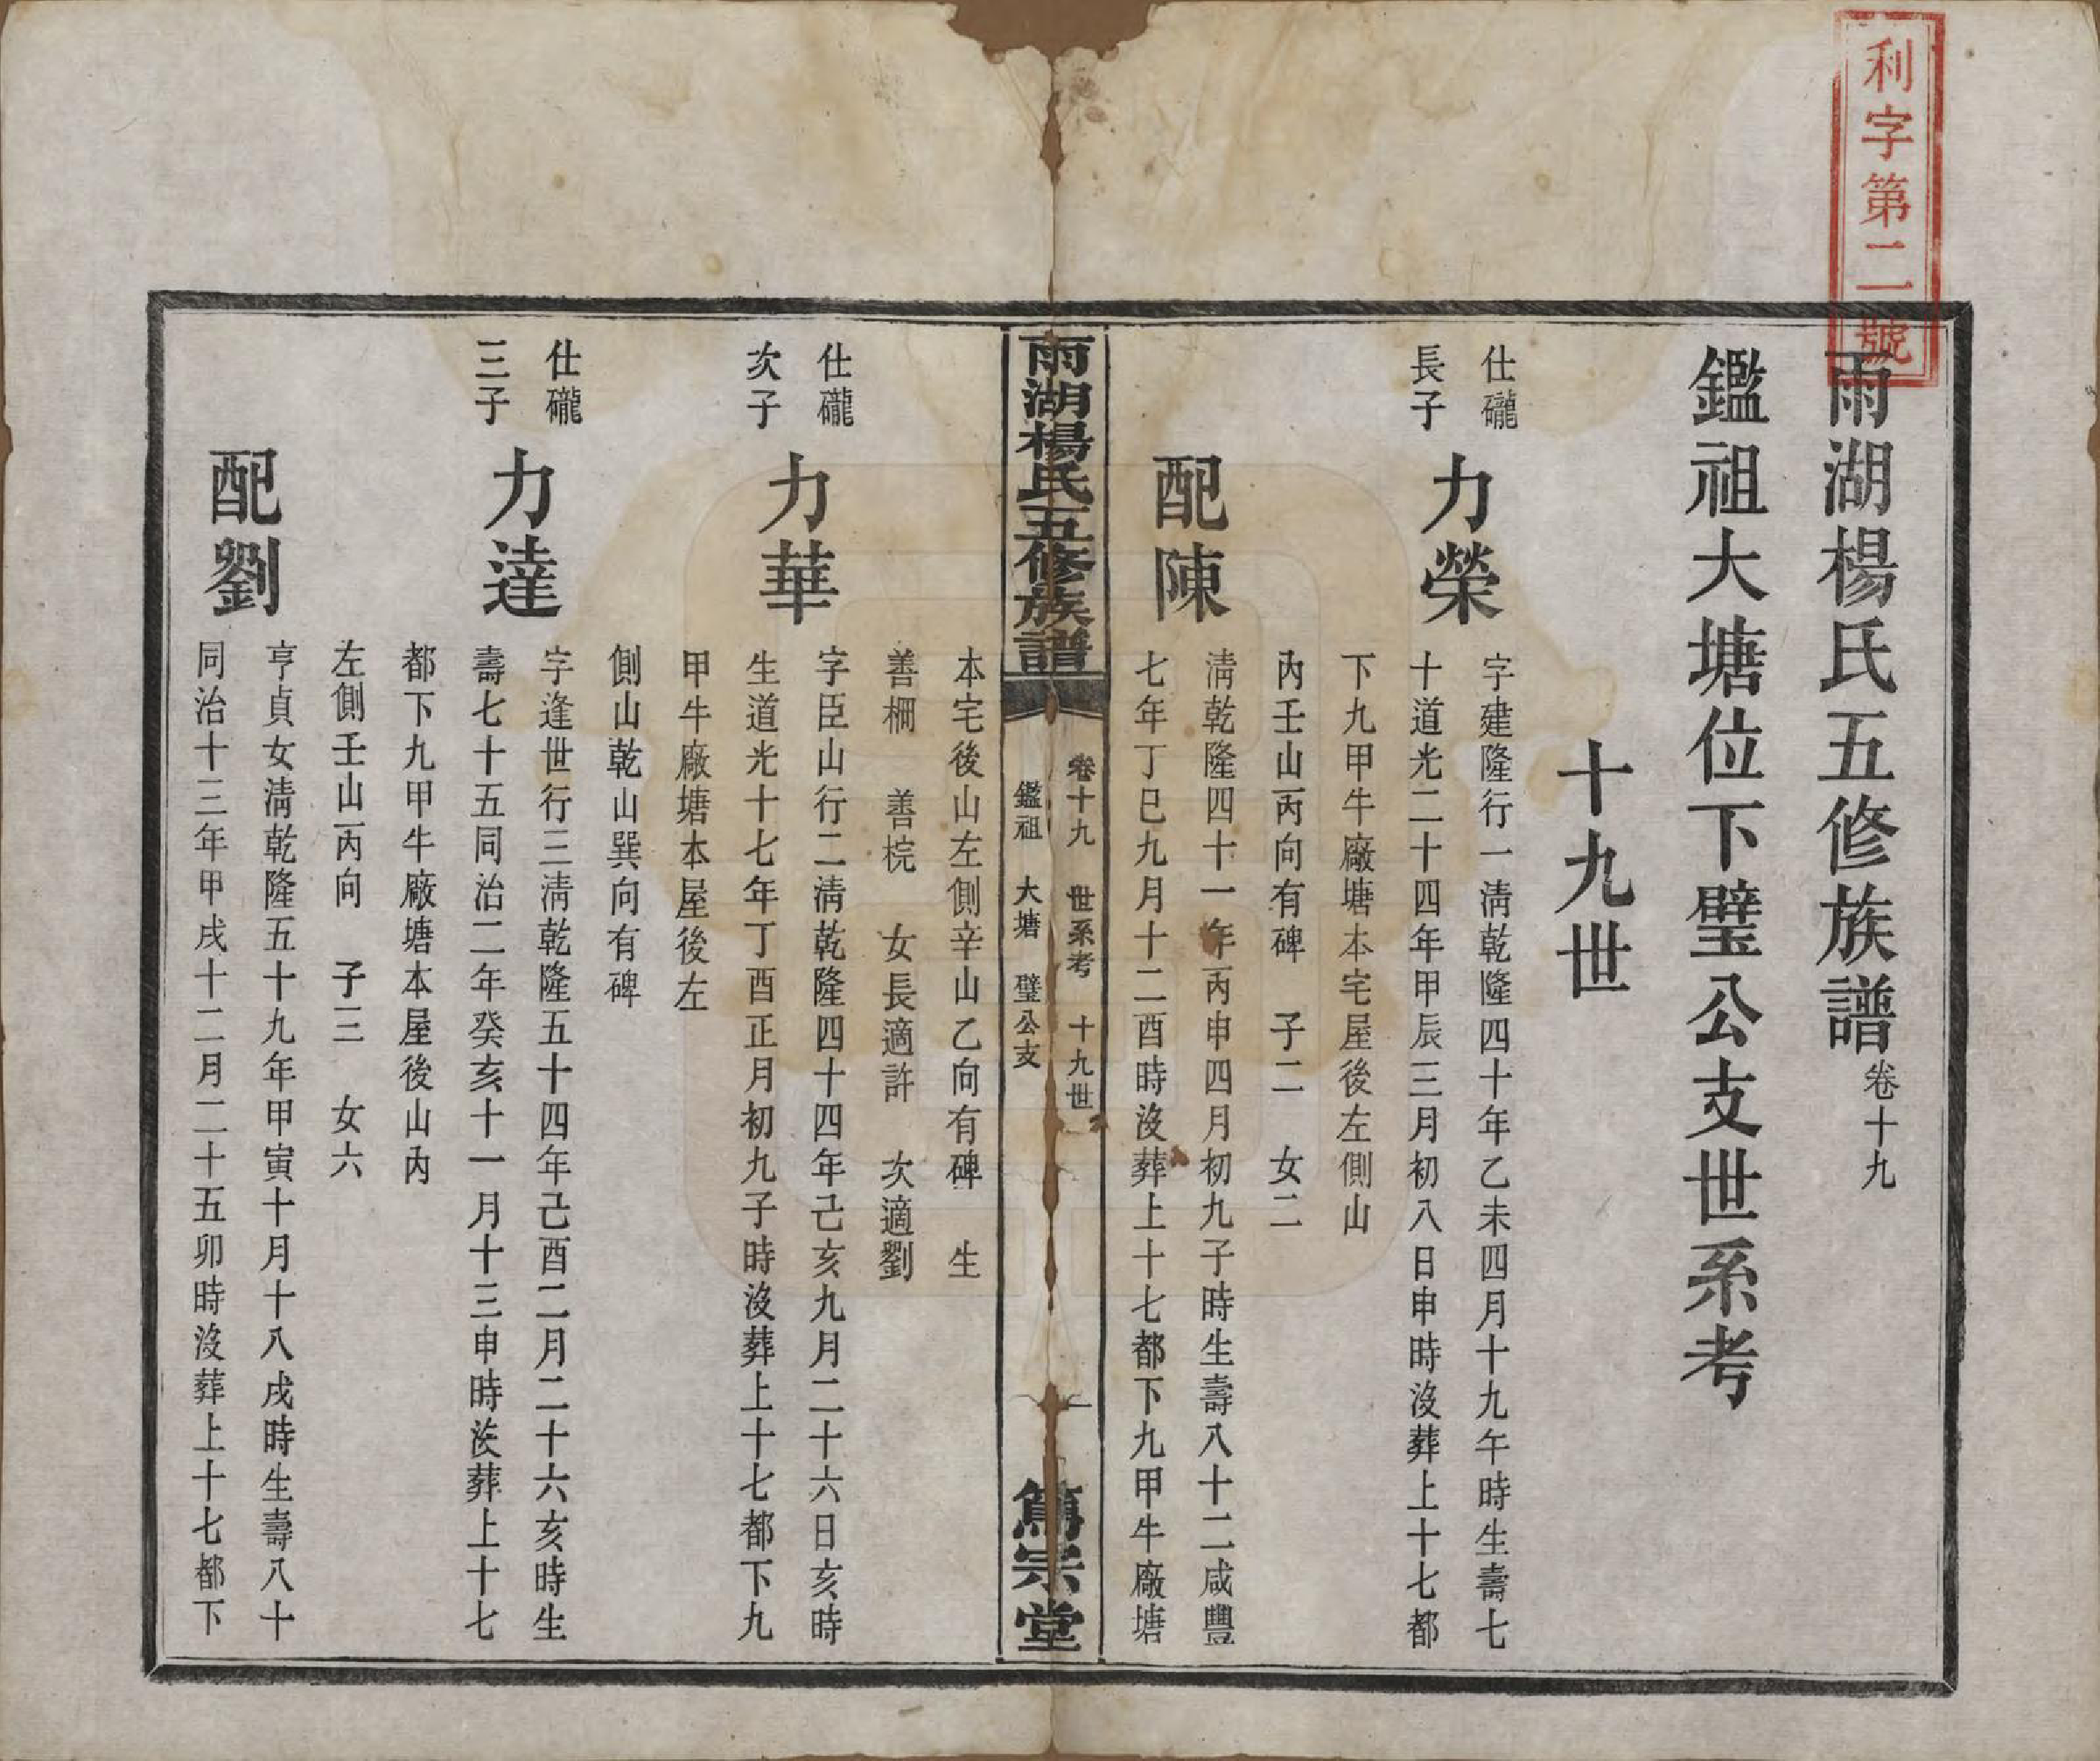 利字第二號
雨湖楊氏五修族譜卷十九
鑑祖大塘位下璧公支世系考
十九世
仕礲
長子
力榮
字建隆行一淸乾隆四十年乙未四月十九午時生壽七
十道光二十四年甲辰三月初八日申時沒葬上十七都
下九甲牛廠塘本宅屋後左側山
內壬山丙向有碑 子二 女二
配陳
淸乾隆四十一年丙申四月初九子時生壽八十二咸豐
七年丁巳九月十二酉時沒葬上十七都下九甲牛廠塘
雨湖楊氏五修族譜
卷十九 世系考 十九世
鑑祖 大塘 璧公支
篤宗堂
本宅後山左側辛山乙向有碑 生
善棚 善梡 女長適許 次適劉
仕礲
次子
力華
字臣山行二淸乾隆四十四年己亥九月二十六日亥時
生道光十七年丁酉正月初九子時沒葬上十七都下九
甲牛廠塘本屋後左
側山乾山巽向有碑
仕礲
三子
力達
字逢世行三淸乾隆五十四年己酉二月二十六亥時生
壽七十五同治二年癸亥十一月十三申時沒葬上十七
都下九甲牛廠塘本屋後山內
左側壬山丙向 子三 女六
配劉
亨貞女淸乾隆五十九年甲寅十月十八戌時生壽八十
同治十三年甲戌十二月二十五卯時沒葬上十七都下